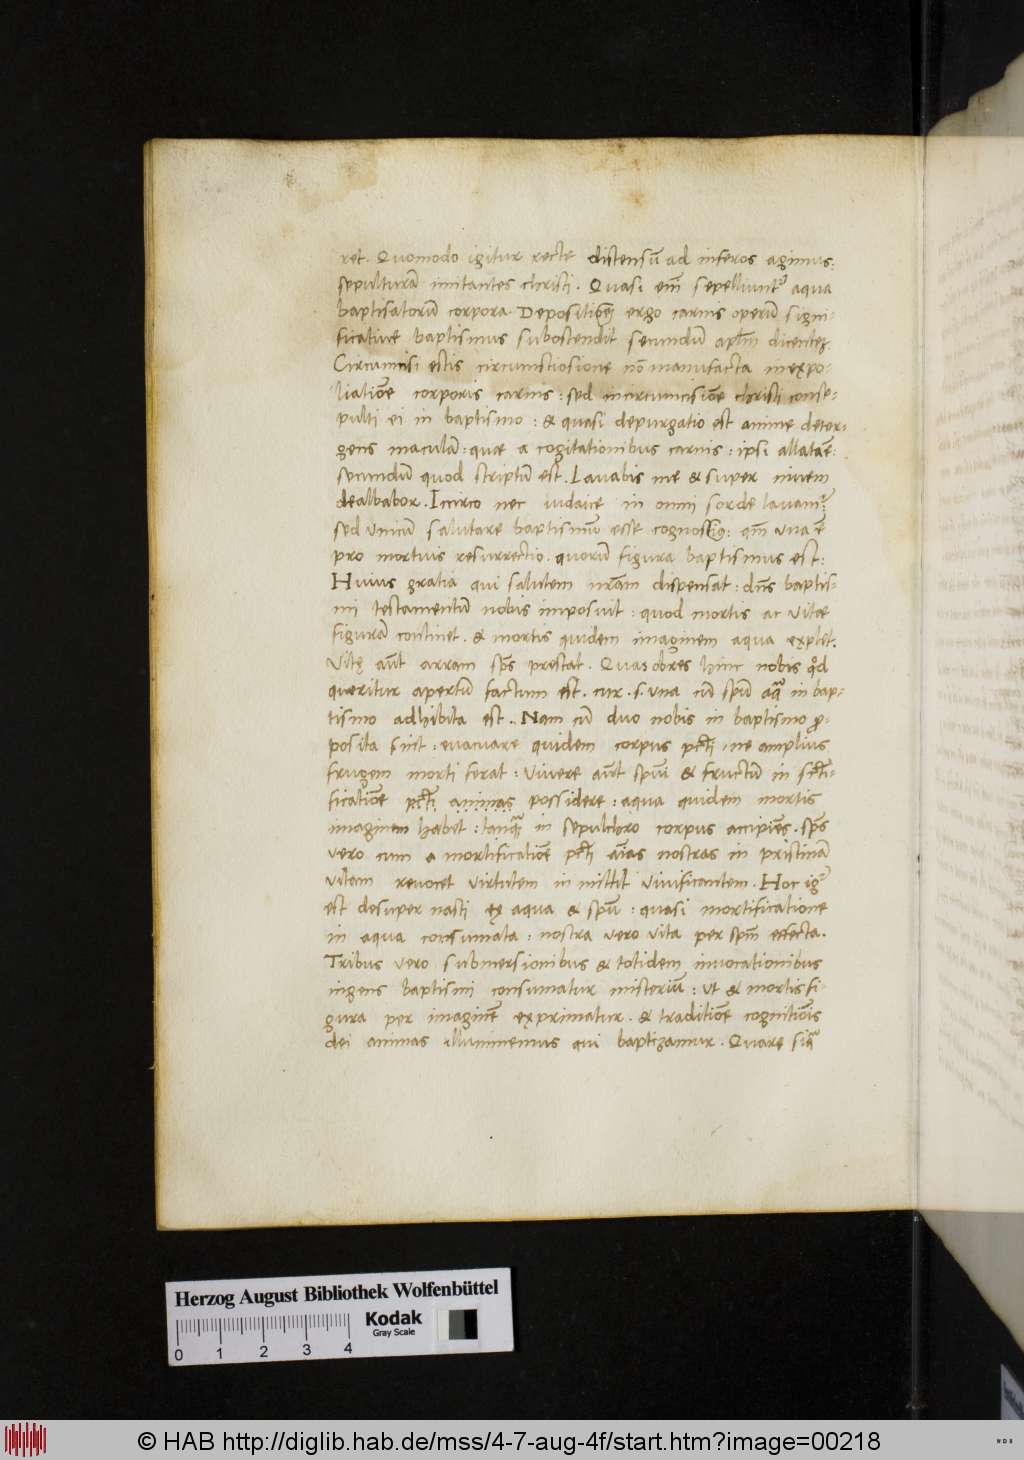 ret. Quomodo igitur recte distensũ ad inferos agimus:
sepulturã imitantes christi. Quasi em̃ sepeliunt᷑ aqua
baptisatorũ corpora. Depositionẽ ergo carnis operũ signi-
ficative baptismus subostendit secundũ aplm̃ dicentẽ.
Circumcisi estis circumstiosione nõ manufacta in expo-
liatiõe corporis carnis: sed in circumcisiõe christi conse-
pulti ei in baptismo: & quasi depurgatio est anime deter-
gens maculã: quae a cogitationibus carnis: ipsi allata ẽ:
secundũ quod scriptũ est. Lavabis me & super nivem
dealbabor. Iccirco nec iudaice in omni sorde lavam᷑
sed unicũ salutare baptismũ esse qm̃ una ẽ
pro mortuis resurrectio. quorũ figura baptismus est:
Huius gratia qui salutem nr̃am dispensat: dñs baptis-
mi testamentũ nobis imposuit: quod mortis ac vitae
figurã continet. & mortis quidem imaginem aqua explet.
Vitę aũt arram sp̃s prestat. Quas obres hinc nobis qd̃
queritur apertũ factum est. cur .s. una cũ spũ aq̃ in bap-
tismo adhibita est.. Nam cũ duo nobis in baptismo pro-
posita sint: evacuare quidem corpus pcti᷑, ne amplius
frugem morti ferat: vivere aũt spũ & fructũ in scti᷑-
ficatiõe pcti᷑ animas possidere: aqua quidem mortis
imaginem habet: tanq̃ in sepulchro corpus accipiẽs. sp̃s
vero cum a mortificatiõe pcti᷑ aĩas nostras in pristinã
vitam revocet virtutem in mittit vivificantem. Hoc ig᷑
est desuper nasti ex aqua & spũ: quasi mortificatione
in aqua consumata: nostra vero vita per spm̃ effecta.
Tribus vero submersionibus & totidem invocationibus
ingens baptismi consumatur misteriũ: ut & mortis fi-
gura per imaginẽ exprimatur. & traditiõe cognitiõis
dei animas illuminemus qui baptizamur. Quare siq̃
Herzog August Bibliothek Wolfenbüttel
Kodak
Gray Scale
0 1 2 3 4
© HAB http://diglib.hab.de/mss/4-7-aug-4f/start.htm?image=00218